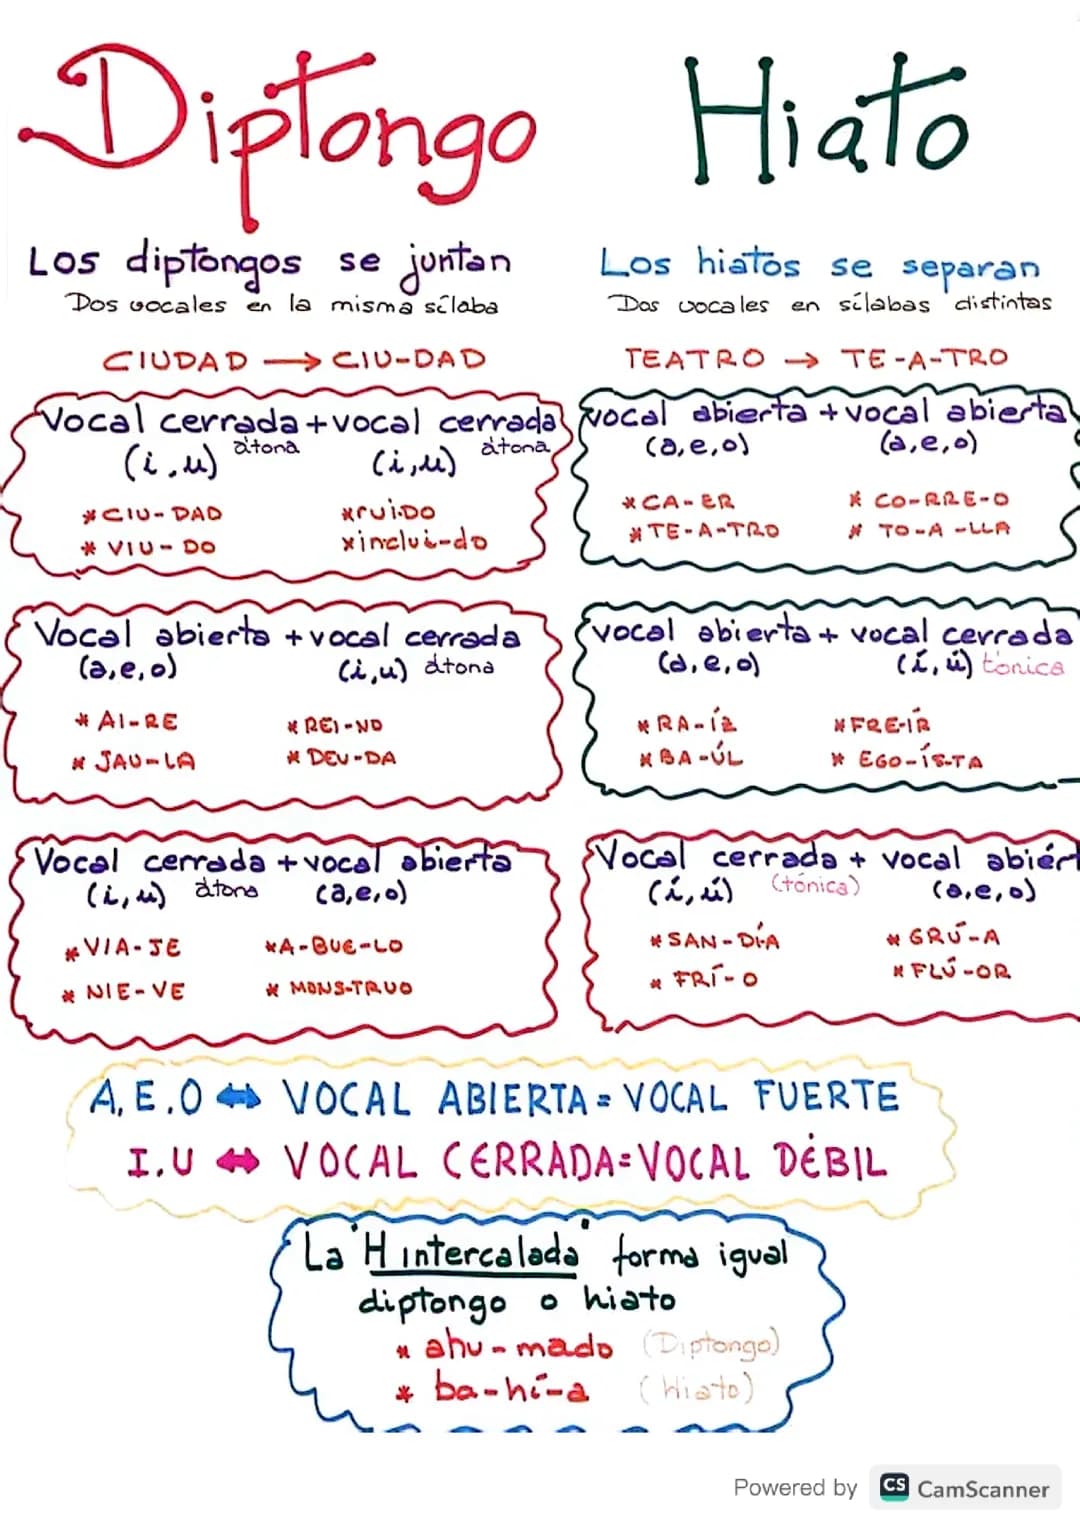 Diptongo
Los diptongos se juntan
Dos vocales en la misma sílaba
CIUDAD → CIU-DAD
Vocal cerrada + vocal cerrada
átona átona
(i, u) (i, u)
* CIU-DAD * rui-DO
* VIU-DO * inclui-do
Vocal abierta + vocal cerrada
(a, e, o) (i, u) átona
* AI-RE * REI-NO
* JAU-LA * DEU-DA
Vocal cerrada + vocal abierta
(i, u) átona (a, e, o)
* VIA-JE * A-BUE-LO
* NIE-VE * MONS-TRUO
Hiato
Los hiatos se separan
Dos vocales en sílabas distintas
TEATRO → TE-A-TRO
vocal abierta + vocal abierta
(a, e, o) (a, e, o)
* CA-ER * CO-RRE-O
* TE-A-TRO * TO-A-LLA
vocal abierta + vocal cerrada
(a, e, o) (í, ú) tónica
* RA-ÍZ * FRE-ÍR
* BA-ÚL * EGO-ÍS-TA
Vocal cerrada + vocal abiert
(í, ú) (tónica) (a, e, o)
* SAN-DÍA * GRÚ-A
* FRÍ-O * FLÚ-OR
A, E, O ⇔ VOCAL ABIERTA = VOCAL FUERTE
I, U ⇔ VOCAL CERRADA = VOCAL DÉBIL
La "H intercalada" forma igual
diptongo o hiato
* ahu-mado (Diptongo)
* ba-hí-a (Hiato)
Powered by CS CamScanner